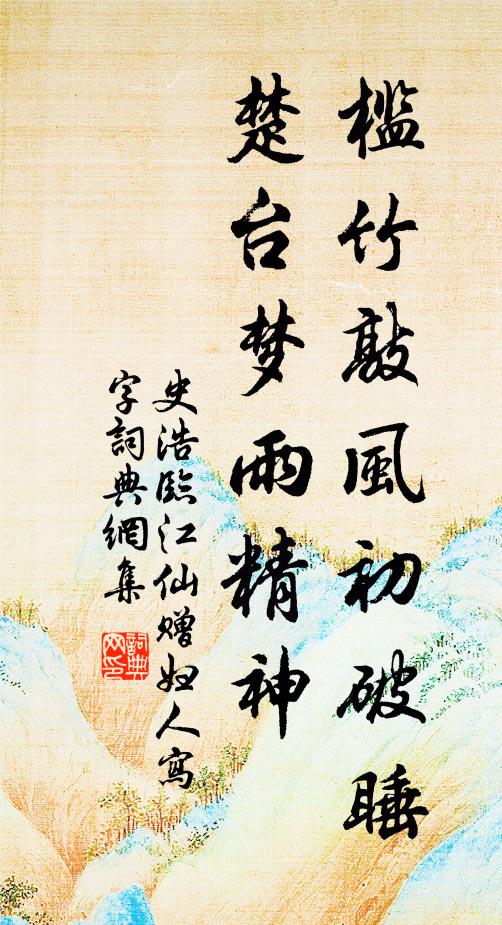 槛竹敲風初破睡
楚台梦雨精神
史浩臨江仙赠妇人寫
字詞典網集
詞典網印